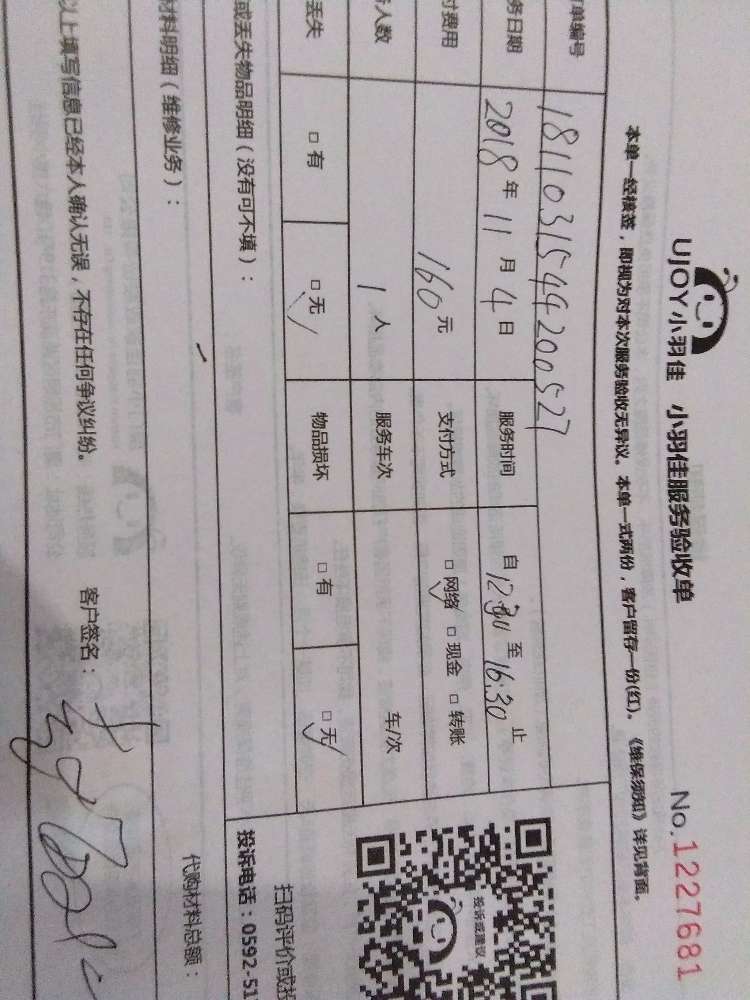 UJOY小羽佳 小羽佳服务验收单 No.1227681
本单一经核签，即视为对本次服务验收无异议。本单一式两份，客户留存一份(红)。《维保须知》详见背面。
订单编号 1811031544200527
务日期 2018年11月4日 服务时间 自12:30至16:30止
付费用 160元 支付方式 □网络 □现金 □转账
人数 1人 服务车次 车/次
丢失 □有 □无 物品损坏 □有 □无
或丢失物品明细（没有可不填）：
材料明细（维修业务）：
投诉或建议
扫码评价或投
投诉电话：0592-51
代购材料总额：
以上填写信息已经本人确认无误，不存在任何争议纠纷。 客户签名：